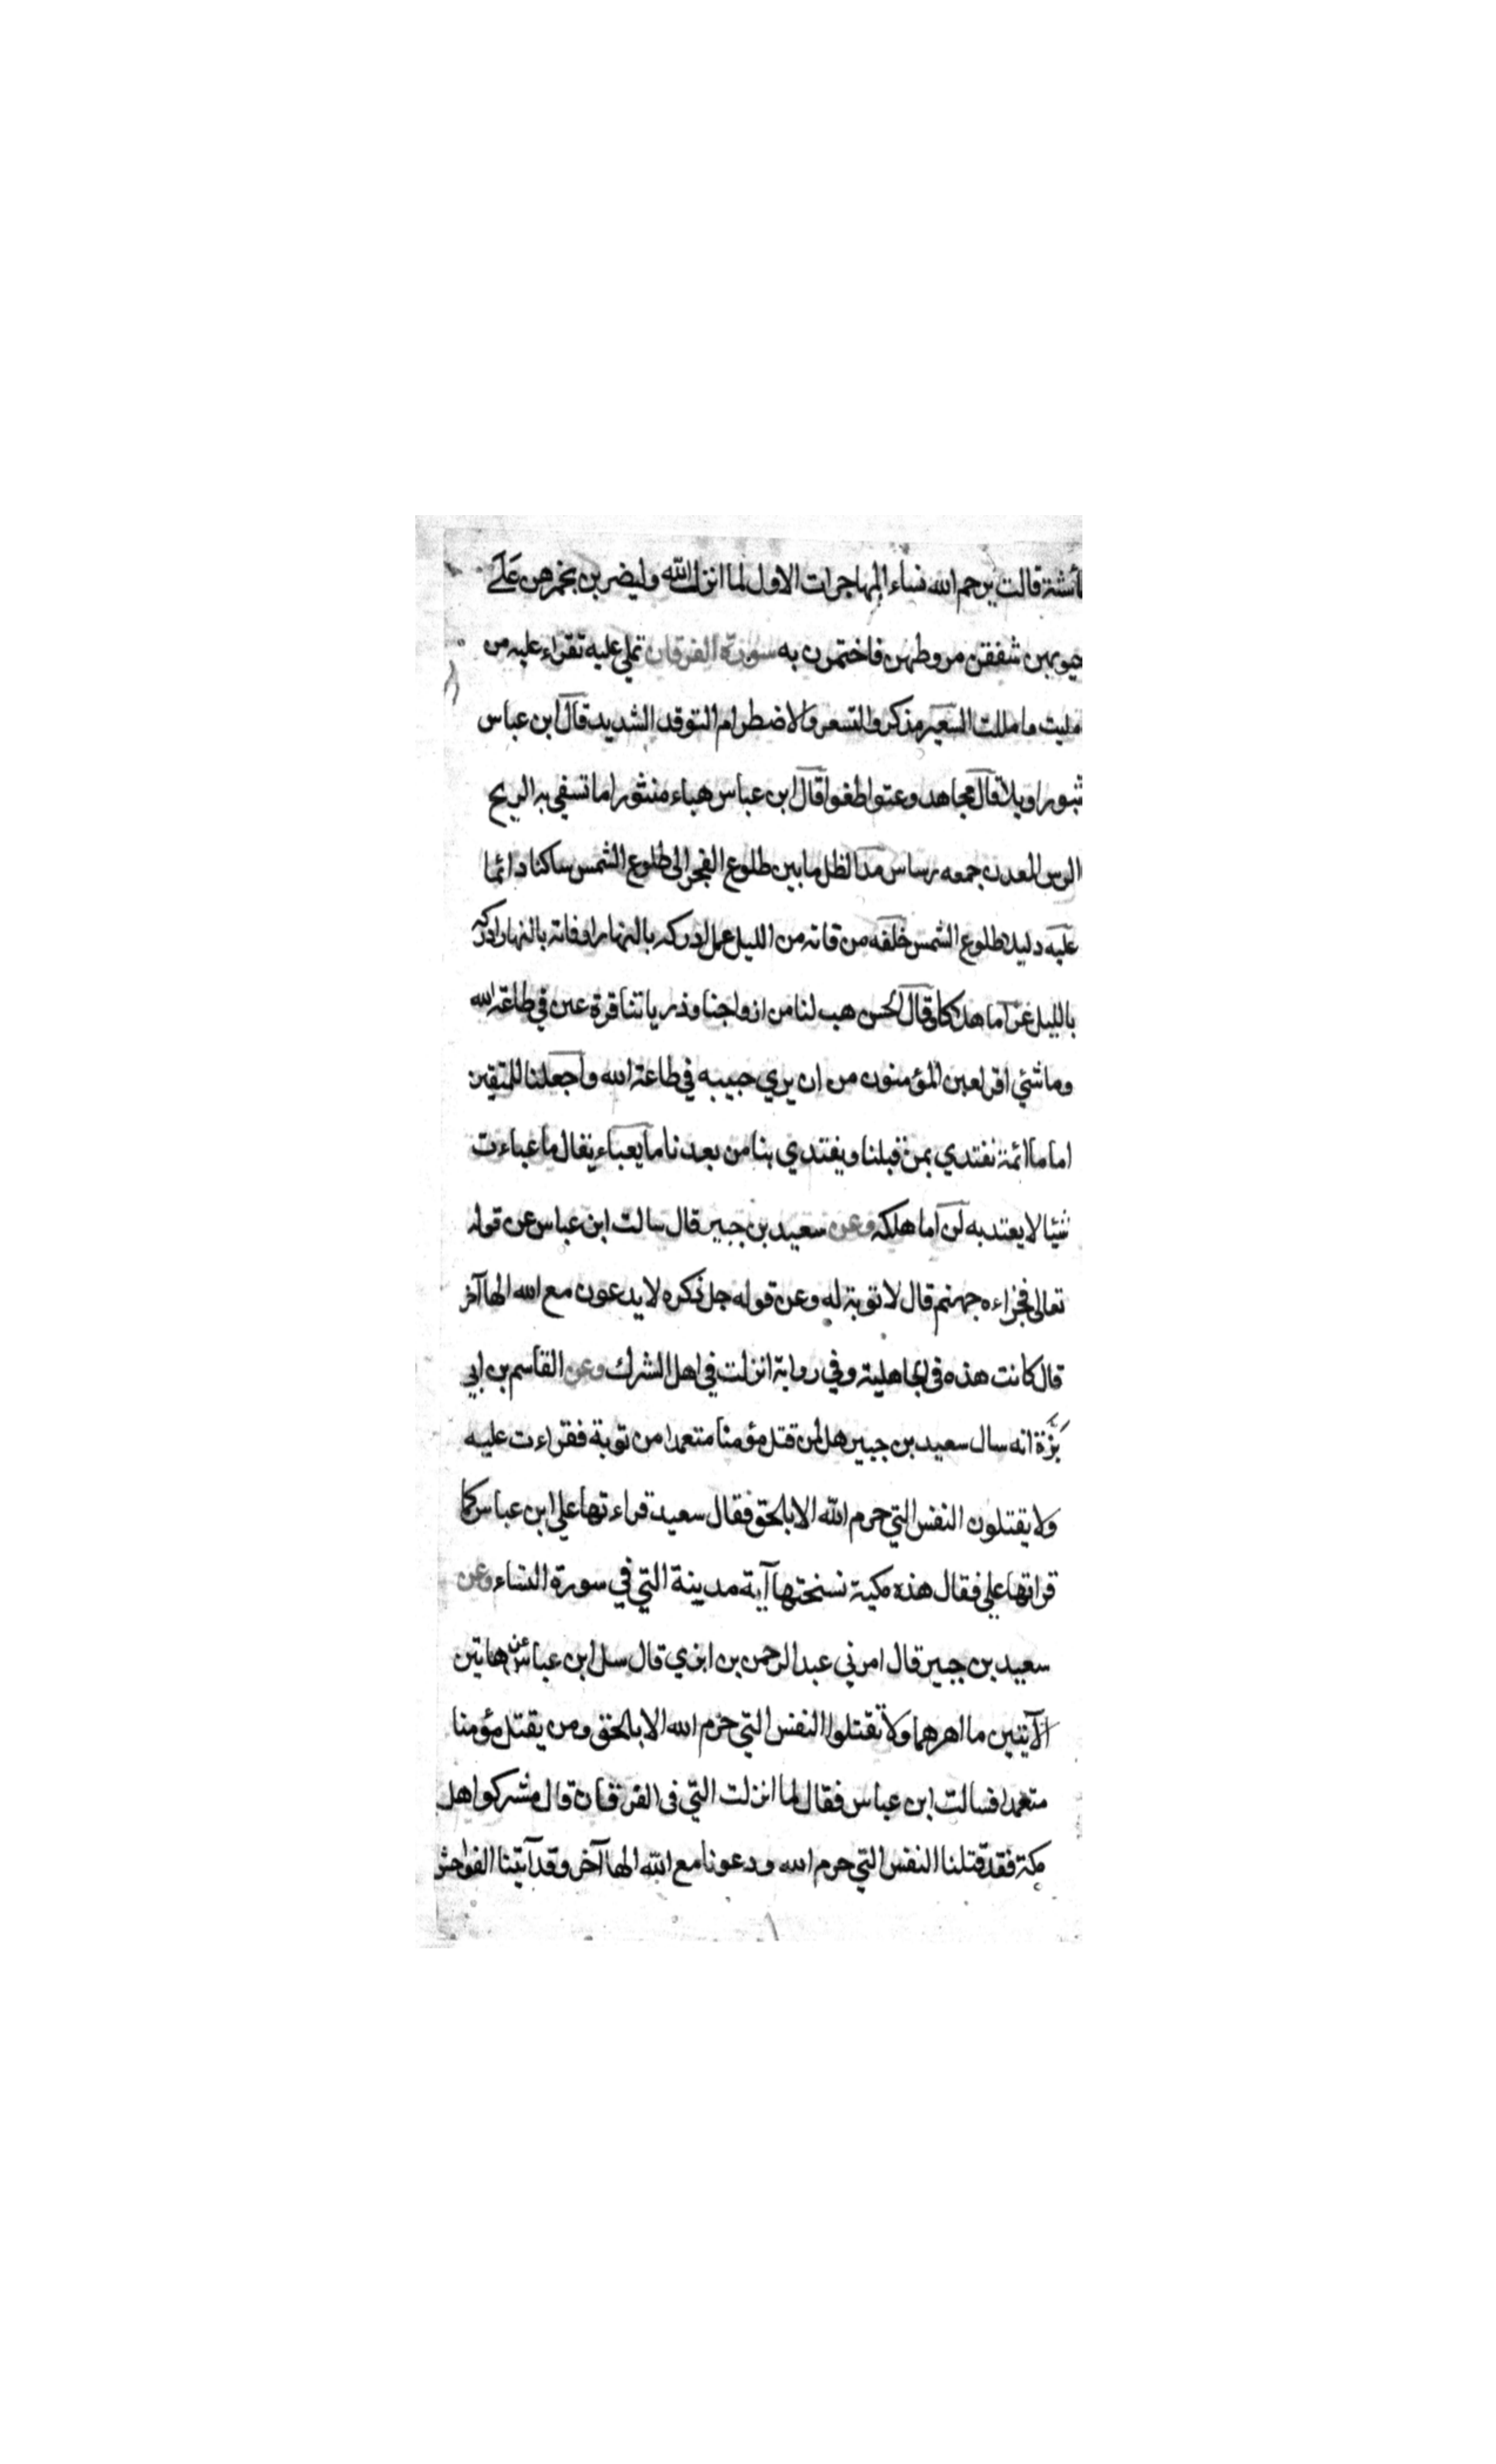 ئشة قالت يرحم الله نساء المهاجرات الاول لما انزل الله وليضربن بخمرهن على
جيوبهن شققن مروطهن فاختمرن به سورة الفرقان تملي عليه تقراء عليه من
امليت ما مللت السعير مذكر والتسعر والاضطرام التوقد الشديد قال ابن عباس
ثبورا ويلا قال مجاهد وعتوا طغوا قال ابن عباس هباء منثورا ما تسفي به الريح
الرس المعدن جمعه رساس مد الظل ما بين طلوع الفجر الى طلوع الشمس ساكنا دائما
عليه دليلا طلوع الشمس خلفه من فاته من الليل عمل ادركه بالنهار او فاته بالنهار ادركه
بالليل غراما هلاكا وقال الحسن هب لنا من ازواجنا وذرياتنا قرة عين في طاعة الله
وما شئ اقر لعين المؤمنون من ان يري حبيبه في طاعة الله واجعلنا للمتقين
اماما ائمة نقتدي بمن قبلنا ويقتدي بنا من بعدنا ما يعباء يقال ما عباءت
شيئا لا يعتد به لزاما هلكه وعن سعيد بن جبير قال سالت ابن عباس عن قوله
تعالى فجزاءه جهنم قال لا توبة له وعن قوله جل ذكره لا يدعون مع الله الها آخر
قال كانت هذه فى الجاهلية وفي رواية انزلت في اهل الشرك وعن القاسم بن ابي
بزة انه سال سعيد بن جبير هل لمن قتل مؤمنا متعمدا من توبة فقراءت عليه
ولا يقتلون النفس التي حرم الله الا بالحق فقال سعيد قراءتها علي ابن عباس كما
قراتها علي فقال هذه مكية نسختها آية مدينة التي في سورة النساء وعن
سعيد بن جبير قال امرني عبد الرحمن بن ابزي قال سل ابن عباس عن هاتين
الآيتين ما امرهما ولا تقتلوا النفس التي حرم الله الا بالحق ومن يقتل مؤمنا
متعمدا فسالت ابن عباس فقال لما انزلت التي فى الفرقان قال مشركوا اهل
مكة فقد قتلنا النفس التي حرم الله ودعونا مع الله الها آخر وقد آتينا الفواحش